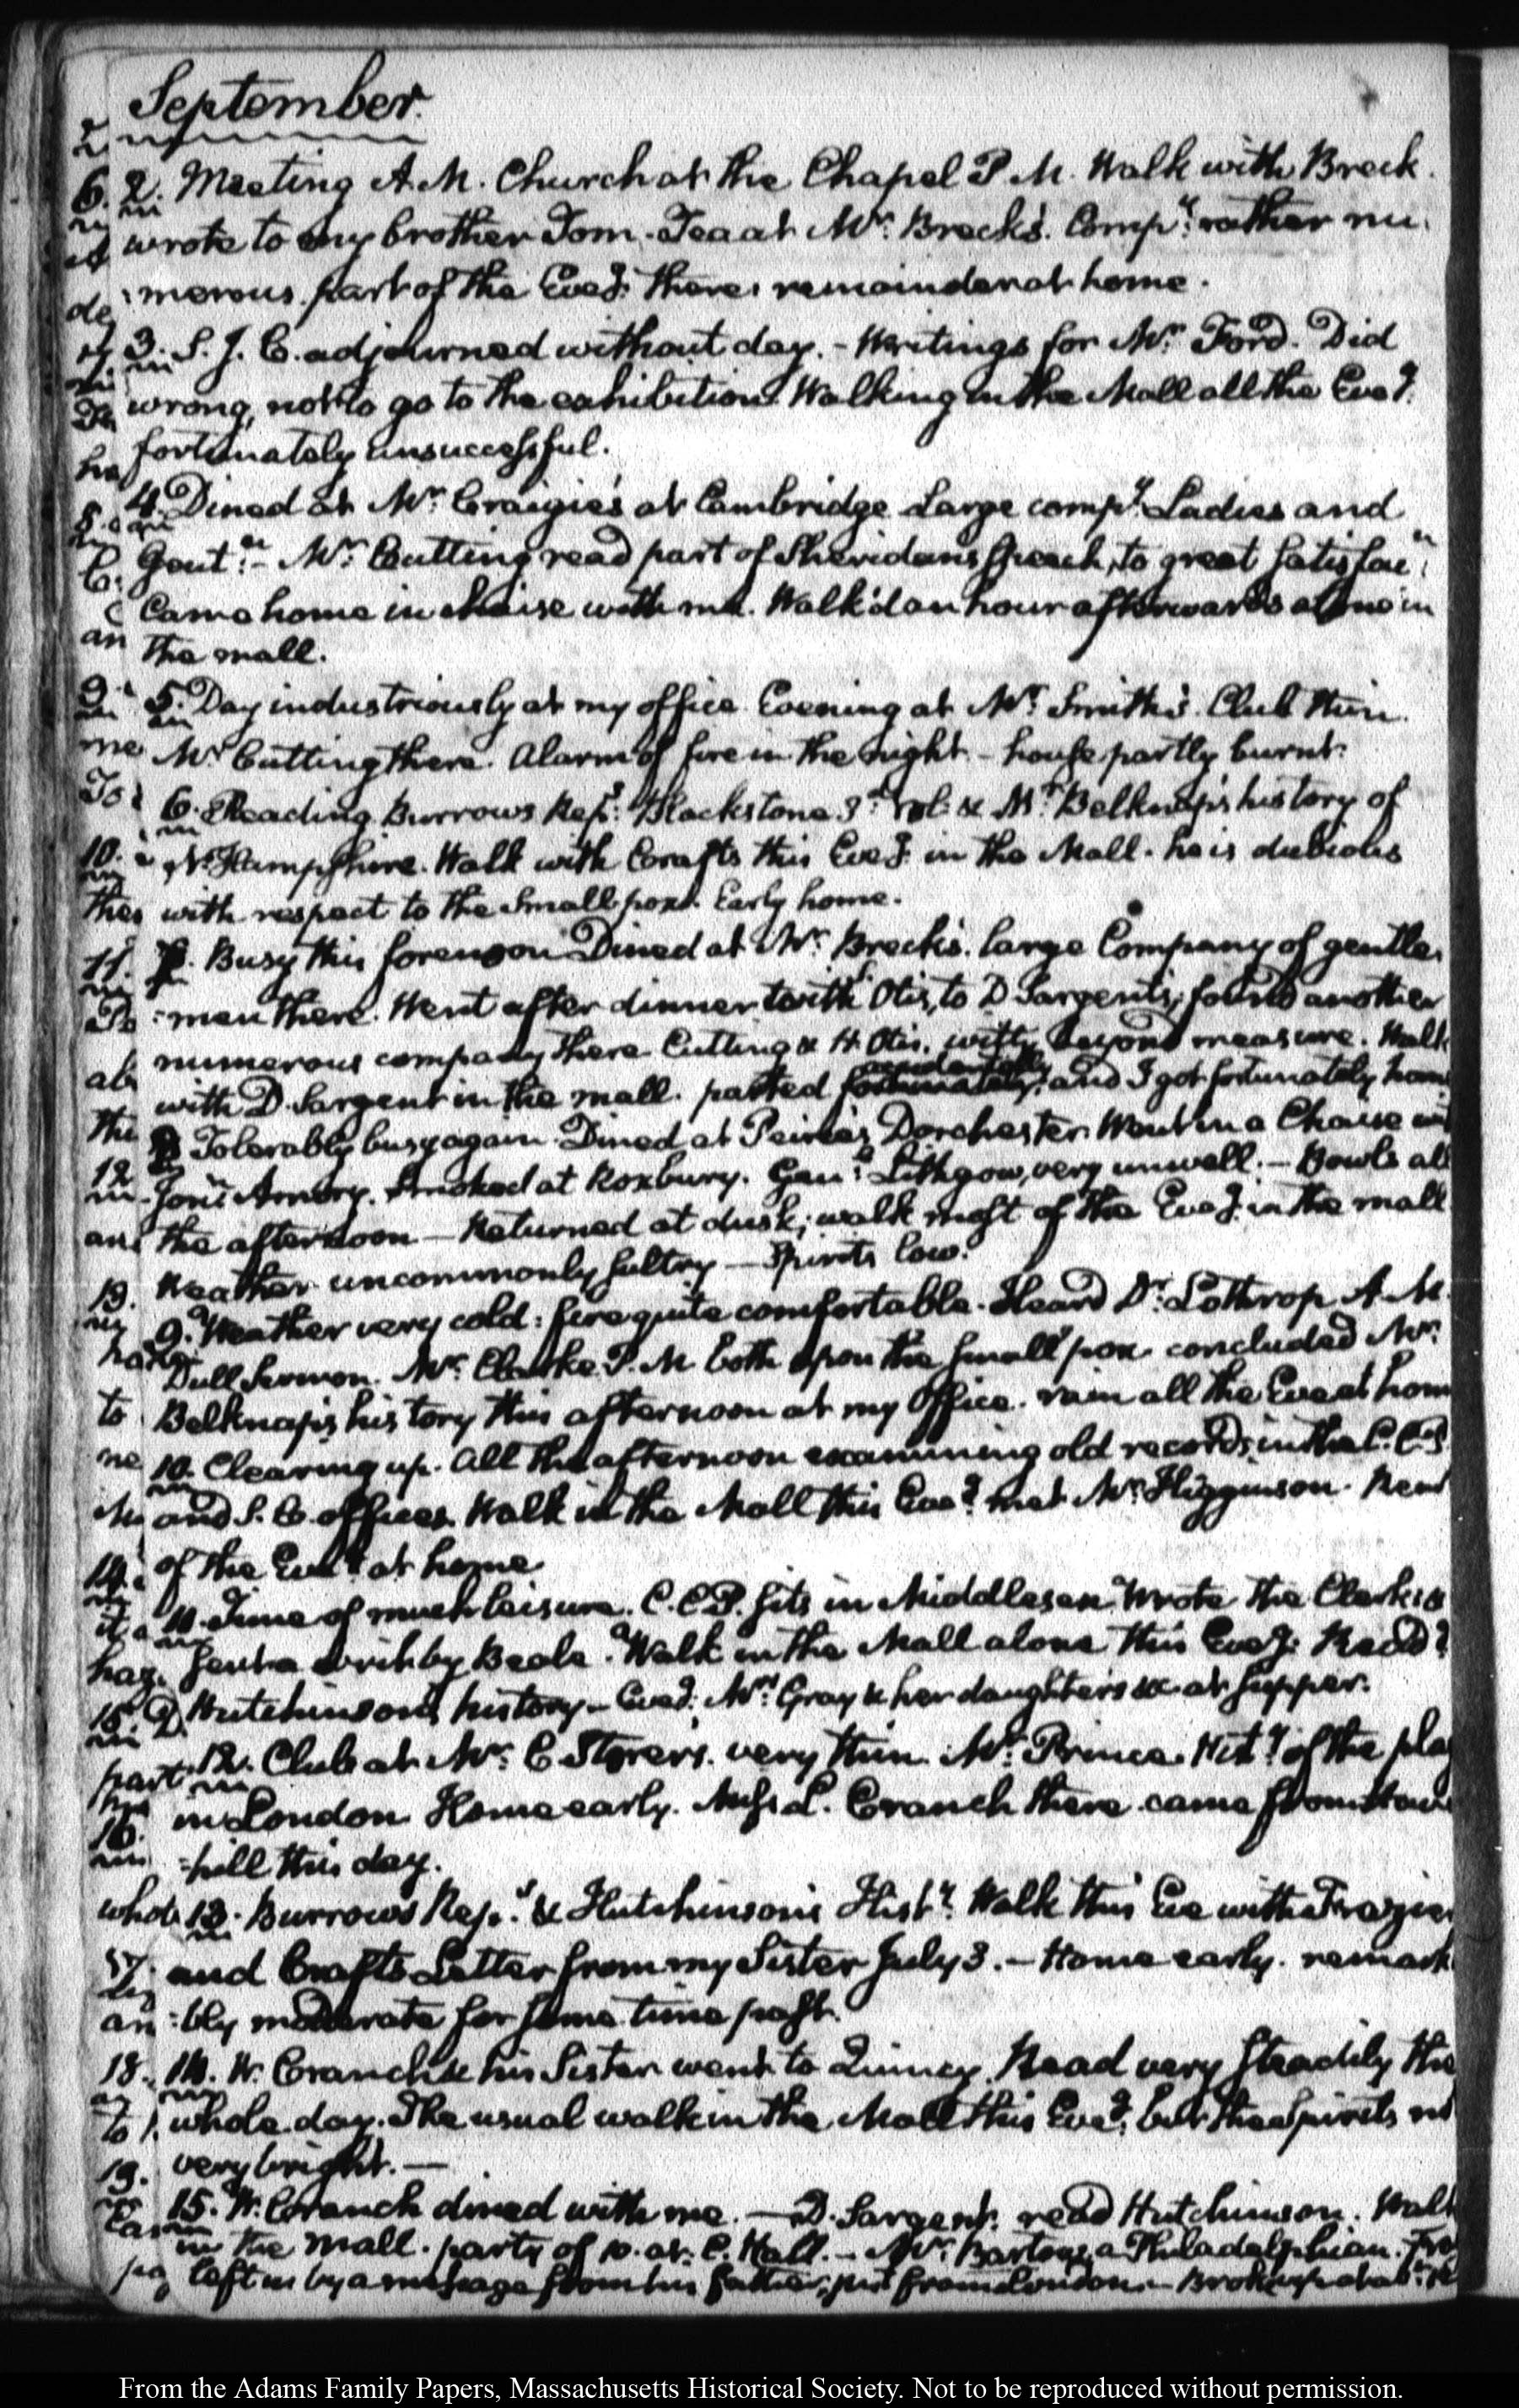 September.
2. Meeting A.M. Church at the Chapel P.M. Walk with Breck.
wrote to my brother Tom. Tea at Mr. Breck's. Compy. rather nu-
:merous. part of the Eveg. there. remainder at home.
3. S. J. C. adjourned without day. - Writings for Mr. Ford. Did
wrong, not to go to the exhibition. Walking in the Mall all the Eveg.
fortunately unsuccessful.
4. Dined at Mr. Craigie's at Cambridge. Large compy. Ladies and
Gentn. - Mr. Cutting read part of Sheridans Speech, to great satisfacn.
Came home in chaise with me. Walk'd an hour afterwards alone in
the mall.
5. Day industriously at my office. Evening at Mr. Smith's. Club thin.
Mr. Cutting there. Alarm of fire in the night - house partly burnt.
6. Reading Burrows Reps. Blackstone 3d. vol. & Mr. Belknap's history of
N. Hampshire. Walk with Crafts this Eveg. in the Mall. he is dubious
with respect to the Small pox. Early home.
7. Busy this forenoon. Dined at Mr. Breck's. large Company of gentle-
:men there. Went after dinner with S. Otis, to D Sargent's, found another
numerous company there. Cutting & H Otis, witty beyond measure. Walk
with D. Sargent in the mall. parted accidentally, and I got fortunately home
8 Tolerably busy again. Dined at Peirce's Dorchester. Went in a Chaise with
Jon. Amory. Smoked at Roxbury. Genl. Lithgow, very unwell. - Bowls all
the afternoon - Returned at dusk; walk most of the Eveg. in the mall
Weather uncommonly sultry - Spirits low.
9. Weather very cold: fire quite comfortable. Heard Dr. Lothrop A.M.
Dull Sermon. Mr. Clarke P.M. both upon the small pox. concluded Mr.
Belknap's history this afternoon at my Office. rain all the Eve at home
10. Clearing up. All the afternoon examining old records in the C.C.P
and S. C. offices. Walk in the Mall this Eveg. met Mr. Higginson. Rem
of the Eveg. at home
11. Time of much leisure. C.C.P. sits in Middlesex. Wrote the Clerk &
sent a writ by Beale. Walk in the Mall alone this Eveg. Read
Hutchinson's history - Eveg. Mrs. Gray & her daughters &c at supper.
12. Club at Mr. C Storer's. very thin. Mr. Prince. Histy. of the play
in London. Home early. Miss L. Cranch there. came from Haver
:hill this day.
13. Burrows Reps. & Hutchinson's Histy. Walk this Eve with Frazier
and Crafts. Letter from my Sister July 3. - Home early. remark
:bly moderate for some time past.
14. W. Cranch & his Sister went to Quincy. Read very steadily the
whole day. The usual walk in the Mall this Eveg. but the spirits not
very bright. -
15. W. Cranch dined with me. - D. Sargent. read Hutchinson. Walk
in the mall. party of 10. at C. Hall. - Mr. Barton, a Philadelphian.
left us by a message from his father, just from London. - Broke up
From the Adams Family Papers, Massachusetts Historical Society. Not to be reproduced without permission.